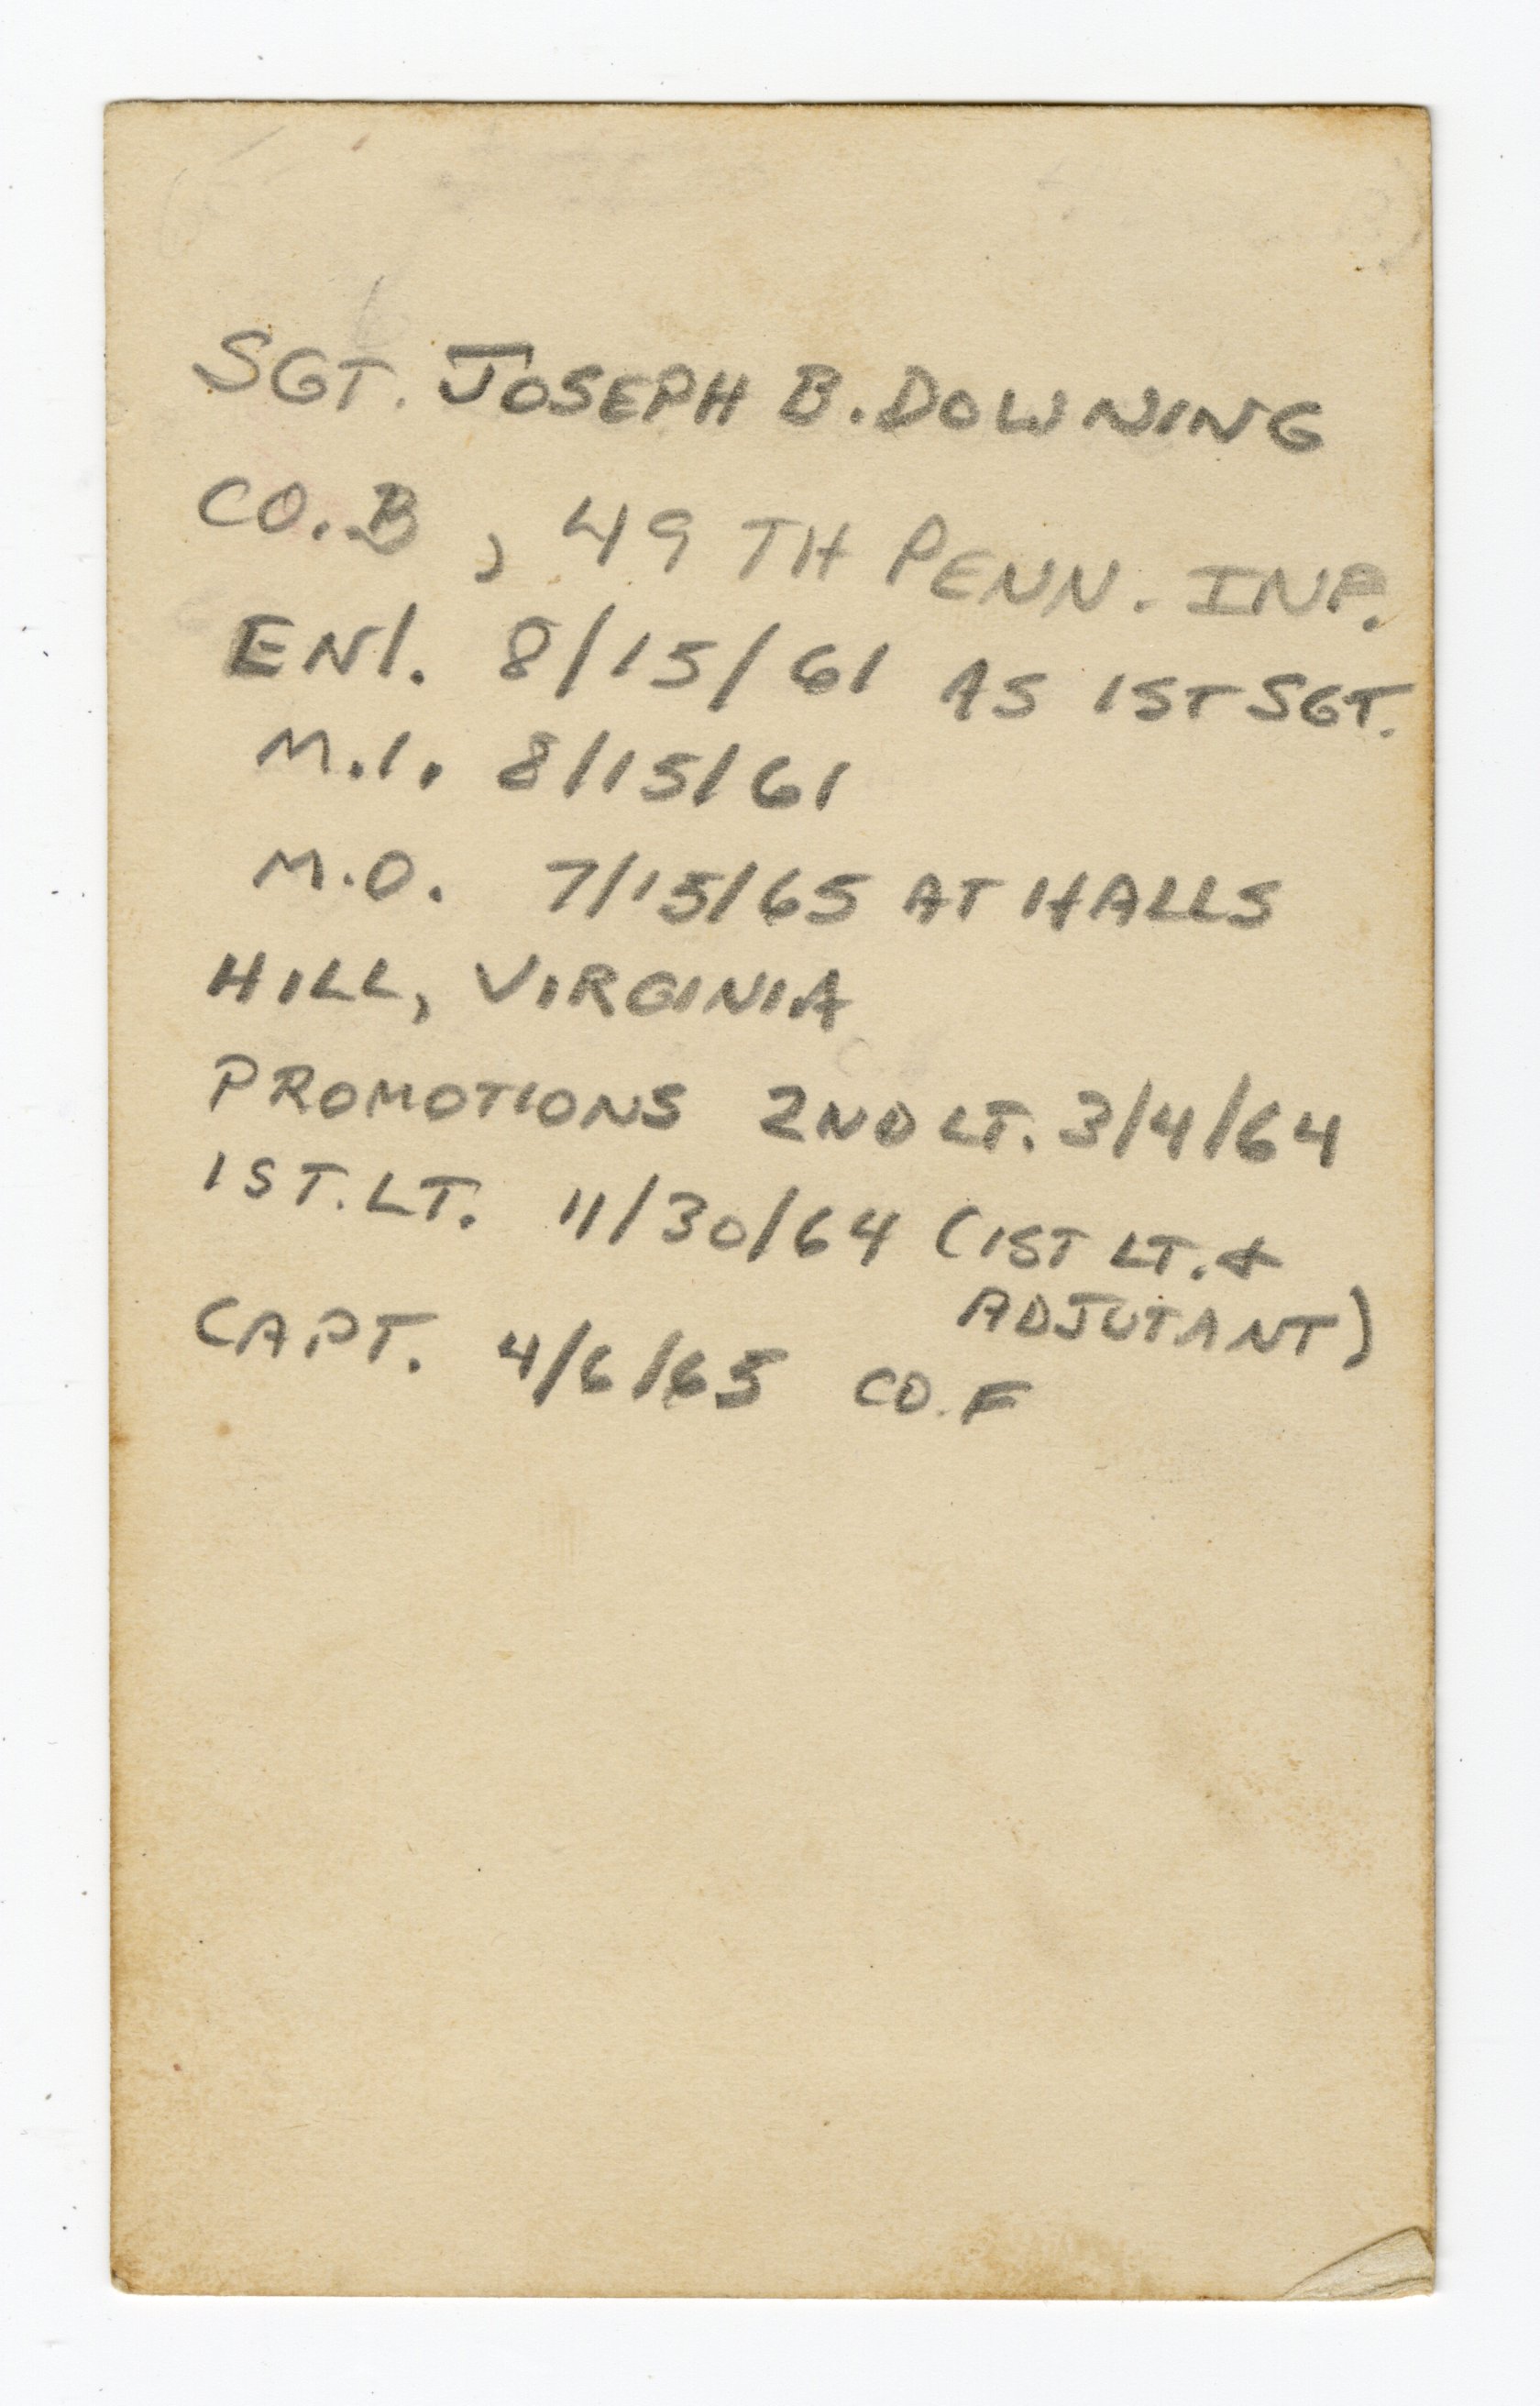 SGT. JOSEPH B. DOWNING
CO. B, 49TH PENN. INF.
ENl. 8/15/61 AS 1ST SGT.
M.I. 8/15/61
M.O. 7/15/65 AT HALLS
HILL, VIRGINIA
PROMOTIONS 2ND LT. 3/4/64
1ST. LT. 11/30/64 (1ST LT. &
ADJUTANT)
CAPT. 4/6/65 CO. F